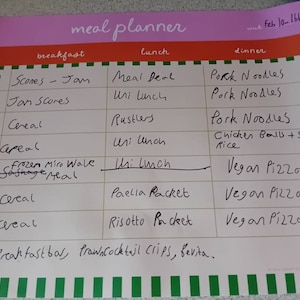 meal planner
week Feb 10-16th
breakfast lunch dinner
Scones - Jam Meal Deal Pork Noodles
Jam Scones Uni Lunch Pork Noodles
Cereal Rustlers Pork Noodles
Cereal Uni Lunch Chicken Balls + S
Rice
Frozen Mini Wake Uni Lunch Vegan Pizza
Sausage Meal
Cereal Paella Packet Vegan Pizza
Cereal Risotto Packet Vegan Pizza
Breakfastbar, Prawncocktail Crips,